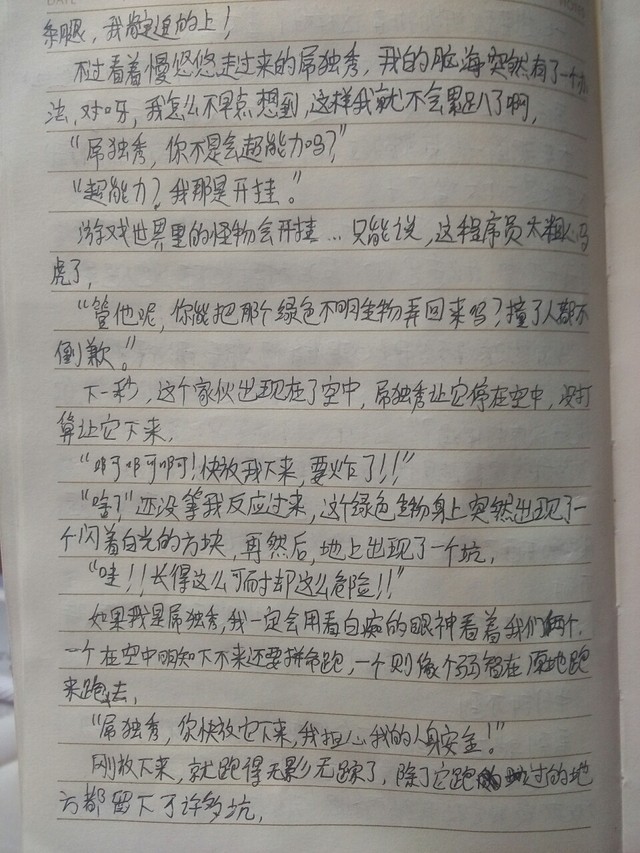 条腿，我肯定追的上！
不过看着慢悠悠走过来的屌独秀，我的脑海突然有了一个办
法，对呀，我怎么不早点想到，这样我就不会累趴了啊，
“屌独秀，你不是会超能力吗？”
“超能力？我那是开挂。”
游戏世界里的怪物会开挂…只能说，这程序员太粗心马
虎了，
“管他呢，你能把那个绿色不明生物弄回来吗？撞了人都不
倒歉。”
下一秒，这个家伙出现在了空中，屌独秀让它停在空中，没打
算让它下来，
“啊啊啊！快放我下来，要炸了！！”
“啥？”还没等我反应过来，这个绿色生物身上突然出现了一
个闪着白光的方块，再然后，地上出现了一个坑，
“哇！！长得这么可爱却这么危险！！”
如果我是屌独秀，我一定会用看白痴的眼神看着我们俩个，
一个在空中明知下不来还要拼命跑，一个则像个弱智在原地跑
来跑去，
“屌独秀，你快放它下来，我担心我的人身安全！”
刚放下来，就跑得无影无踪了，除了它跑过的地
方都留下了许多坑，